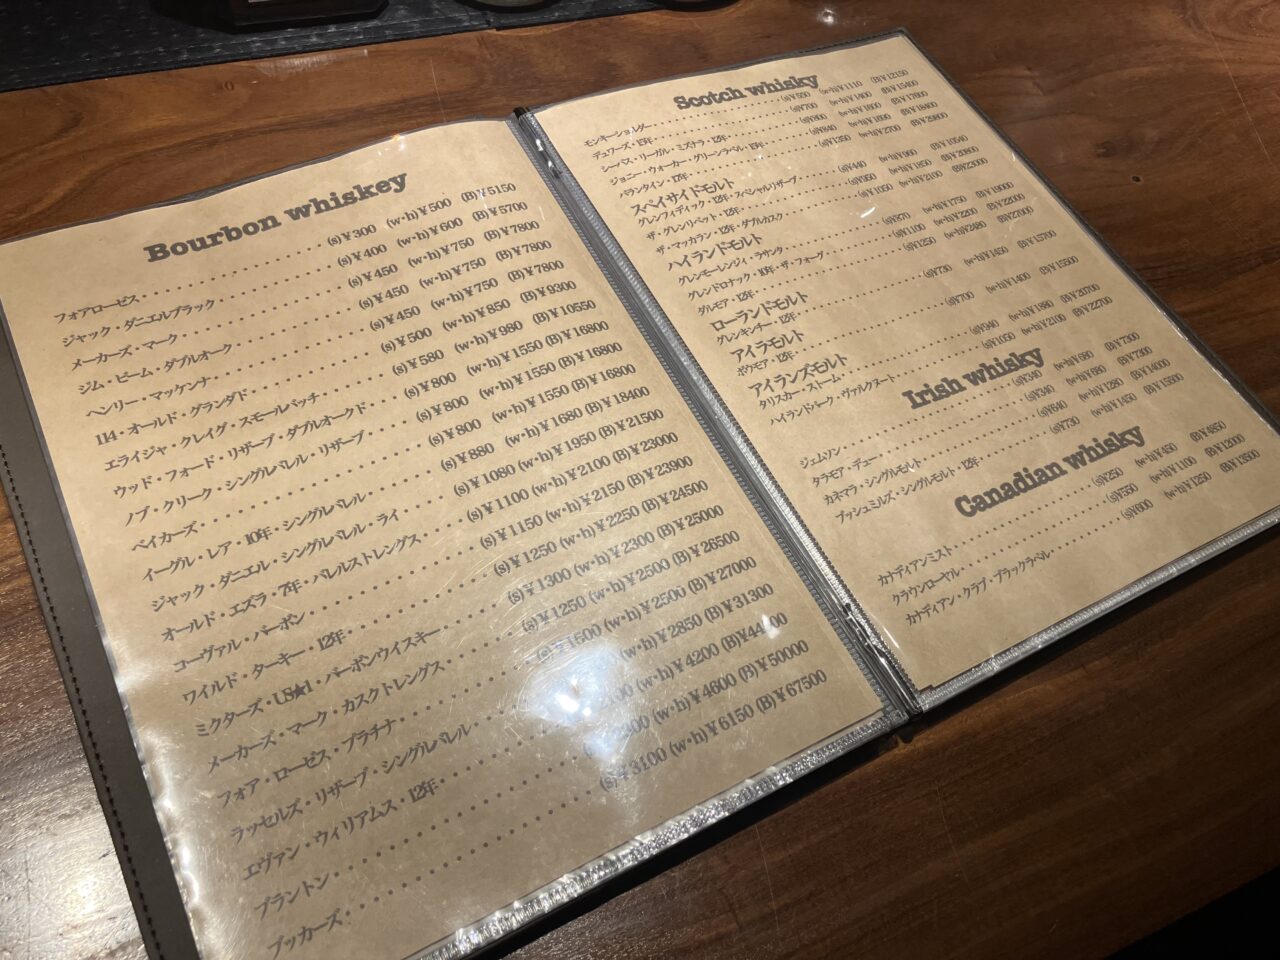 Bourbon whiskey
フォアローゼス (s)¥300 (w・h)¥500 (B)¥5150
ジャック・ダニエルブラック (s)¥400 (w・h)¥600 (B)¥5700
メーカーズ・マーク (s)¥450 (w・h)¥750 (B)¥7800
ジム・ビーム・ダブルオーク (s)¥450 (w・h)¥750 (B)¥7800
ヘンリー・マッケンナ (s)¥450 (w・h)¥750 (B)¥7800
114・オールド・グランダド (s)¥500 (w・h)¥850 (B)¥9300
エライジャ・クレイグ・スモールバッチ (s)¥580 (w・h)¥980 (B)¥10550
ウッド・フォード・リザーブ・ダブルオークド (s)¥800 (w・h)¥1550 (B)¥16800
ノブ・クリーク・シングルバレル・リザーブ (s)¥800 (w・h)¥1550 (B)¥16800
ベイカーズ (s)¥800 (w・h)¥1550 (B)¥16800
イーグル・レア・10年・シングルバレル (s)¥880 (w・h)¥1680 (B)¥18400
ジャック・ダニエル・シングルバレル・ライ (s)¥1080 (w・h)¥1950 (B)¥21500
オールド・エズラ・7年・バレルストレングス (s)¥1100 (w・h)¥2100 (B)¥23000
コーヴァル・バーボン (s)¥1150 (w・h)¥2150 (B)¥23900
ワイルド・ターキー・12年 (s)¥1250 (w・h)¥2250 (B)¥24500
ミクターズ・US★1・バーボンウイスキー (s)¥1300 (w・h)¥2300 (B)¥25000
メーカーズ・マーク・カスクトレングス (s)¥1250 (w・h)¥2500 (B)¥26500
フォア・ローゼス・プラチナ (s)¥1500 (w・h)¥2500 (B)¥27000
ラッセルズ・リザーブ・シングルバレル (w・h)¥2850 (B)¥31300
エヴァン・ウィリアムス・12年 (w・h)¥4200
ブラントン (w・h)¥4600 (B)¥50000
ブッカーズ (s)¥3100 (w・h)¥6150 (B)¥67500
Scotch whisky
モンキーショルダー (s)¥550 (w・h)¥1110 (B)¥12150
デュワーズ・15年 (s)¥700 (w・h)¥1400 (B)¥15400
シーバス・リーガル・ミズナラ・12年 (s)¥800 (w・h)¥1600 (B)¥17600
ジョニー・ウォーカー・グリーンラベル・15年 (s)¥840 (w・h)¥1690 (B)¥18400
バランタイン・17年 (s)¥1350 (w・h)¥2700 (B)¥29800
スペイサイドモルト
グレンフィディック・12年・スペシャルリザーブ (s)¥440 (w・h)¥960 (B)¥10540
ザ・グレンリベット・12年 (s)¥950 (w・h)¥1850 (B)¥20800
ザ・マッカラン・12年・ダブルカスク (s)¥1050 (w・h)¥2100 (B)¥23000
ハイランドモルト
グレンモーレンジィ・ラサンタ (s)¥870 (w・h)¥1750 (B)¥19000
グレンドロナック・10年・ザ・フォーグ (s)¥1100 (w・h)¥2200 (B)¥22000
ダルモア・12年 (s)¥1250 (w・h)¥2480 (B)¥27000
ローランドモルト
グレンキンチー・12年 (s)¥730 (w・h)¥1450 (B)¥15700
アイラモルト
ボウモア・12年 (s)¥700 (w・h)¥1400 (B)¥15500
アイランズモルト
タリスカー・ストーム (s)¥940 (w・h)¥1880 (B)¥20700
ハイランドパーク・ヴァルクヌート (s)¥1050 (w・h)¥2100 (B)¥22700
Irish whisky
ジェムソン (s)¥340 (w・h)¥580 (B)¥7300
タラモア・デュー (s)¥340 (w・h)¥680 (B)¥7300
カネマラ・シングルモルト (s)¥640 (w・h)¥1280 (B)¥14000
ブッシュミルズ・シングルモルト・12年 (s)¥730 (w・h)¥1450 (B)¥15500
Canadian whisky
カナディアンミスト (s)¥250 (w・h)¥450 (B)¥4850
クラウンローヤル (s)¥550 (w・h)¥1100 (B)¥12000
カナディアン・クラブ・ブラックラベル (s)¥600 (w・h)¥1250 (B)¥13500